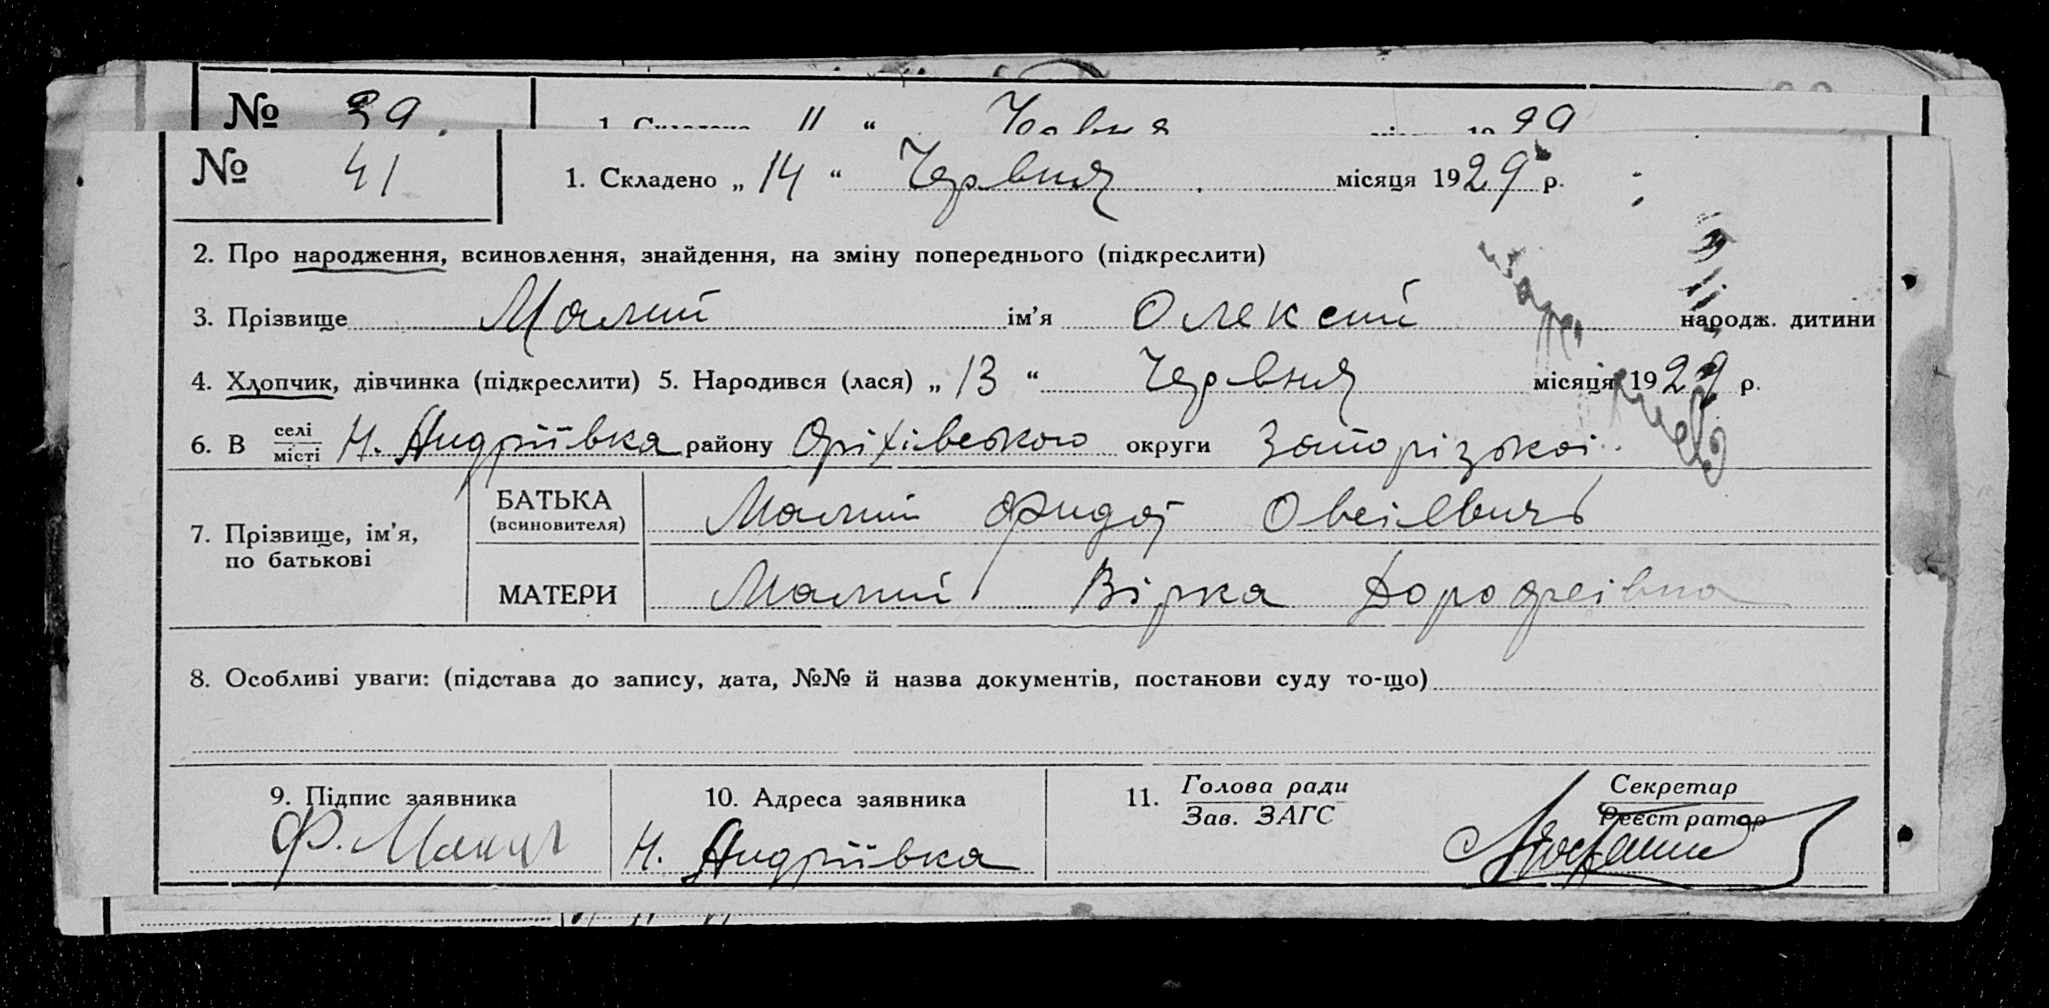 № 39.
№ 41
1. Складено „ 14 “ Червня місяця 1929 р.
2. Про народження, всиновлення, знайдення, на зміну попереднього (підкреслити)
3. Прізвище Малий ім’я Олексій народж. дитини
4. Хлопчик, дівчинка (підкреслити) 5. Народився (лася) „ 13 “ Червня місяця 1929 р.
6. В селі місті Н. Андріївка району Оріхівського округи Запорізької
7. Прізвище, ім’я, по батькові
БАТЬКА (всиновителя) Малий Федот Овсієвичь
МАТЕРИ Малий Вірка Дорофеівна
8. Особливі уваги: (підстава до запису, дата, №№ й назва документів, постанови суду то-що)
9. Підпис заявника
Ф. Малий
10. Адреса заявника
Н. Андріївка
11. Голова ради
Зав. ЗАГС
Секретар
Реєстратор